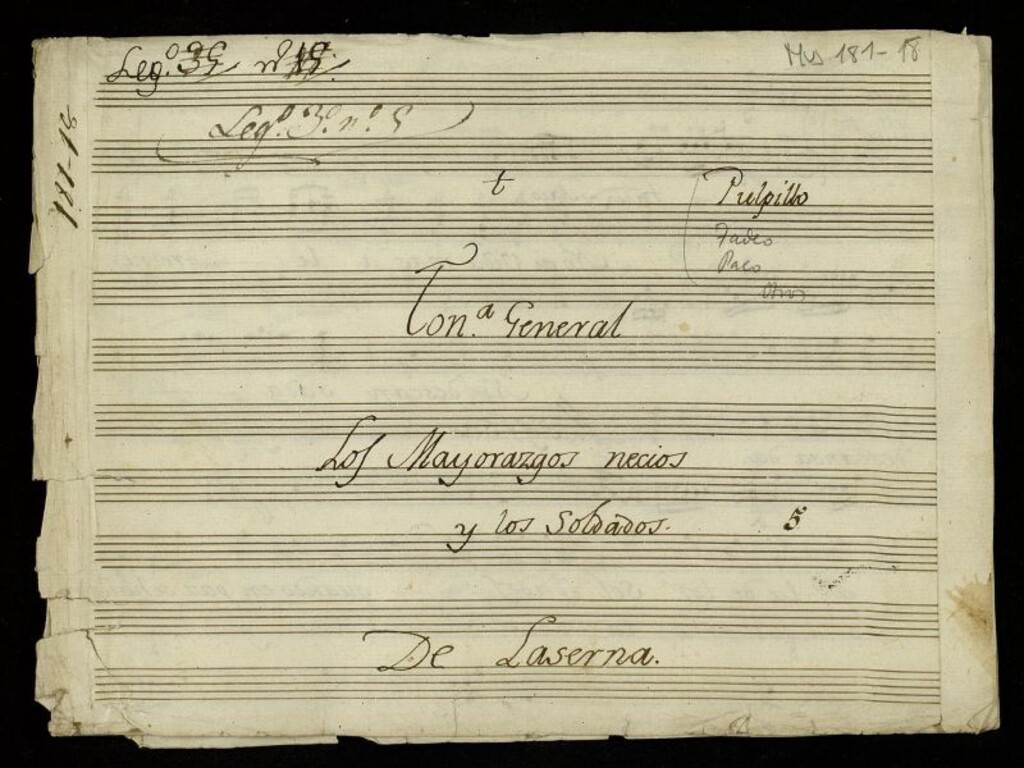 Leg.º 35 nº 18.
Mus 181-18
Leg.º 3.º n.º 5
181-18
t
Pulpillo
Tadeo
Paco
otros
Ton.ª General
Los Mayorazgos necios
y los Soldados. 5
De Laserna.